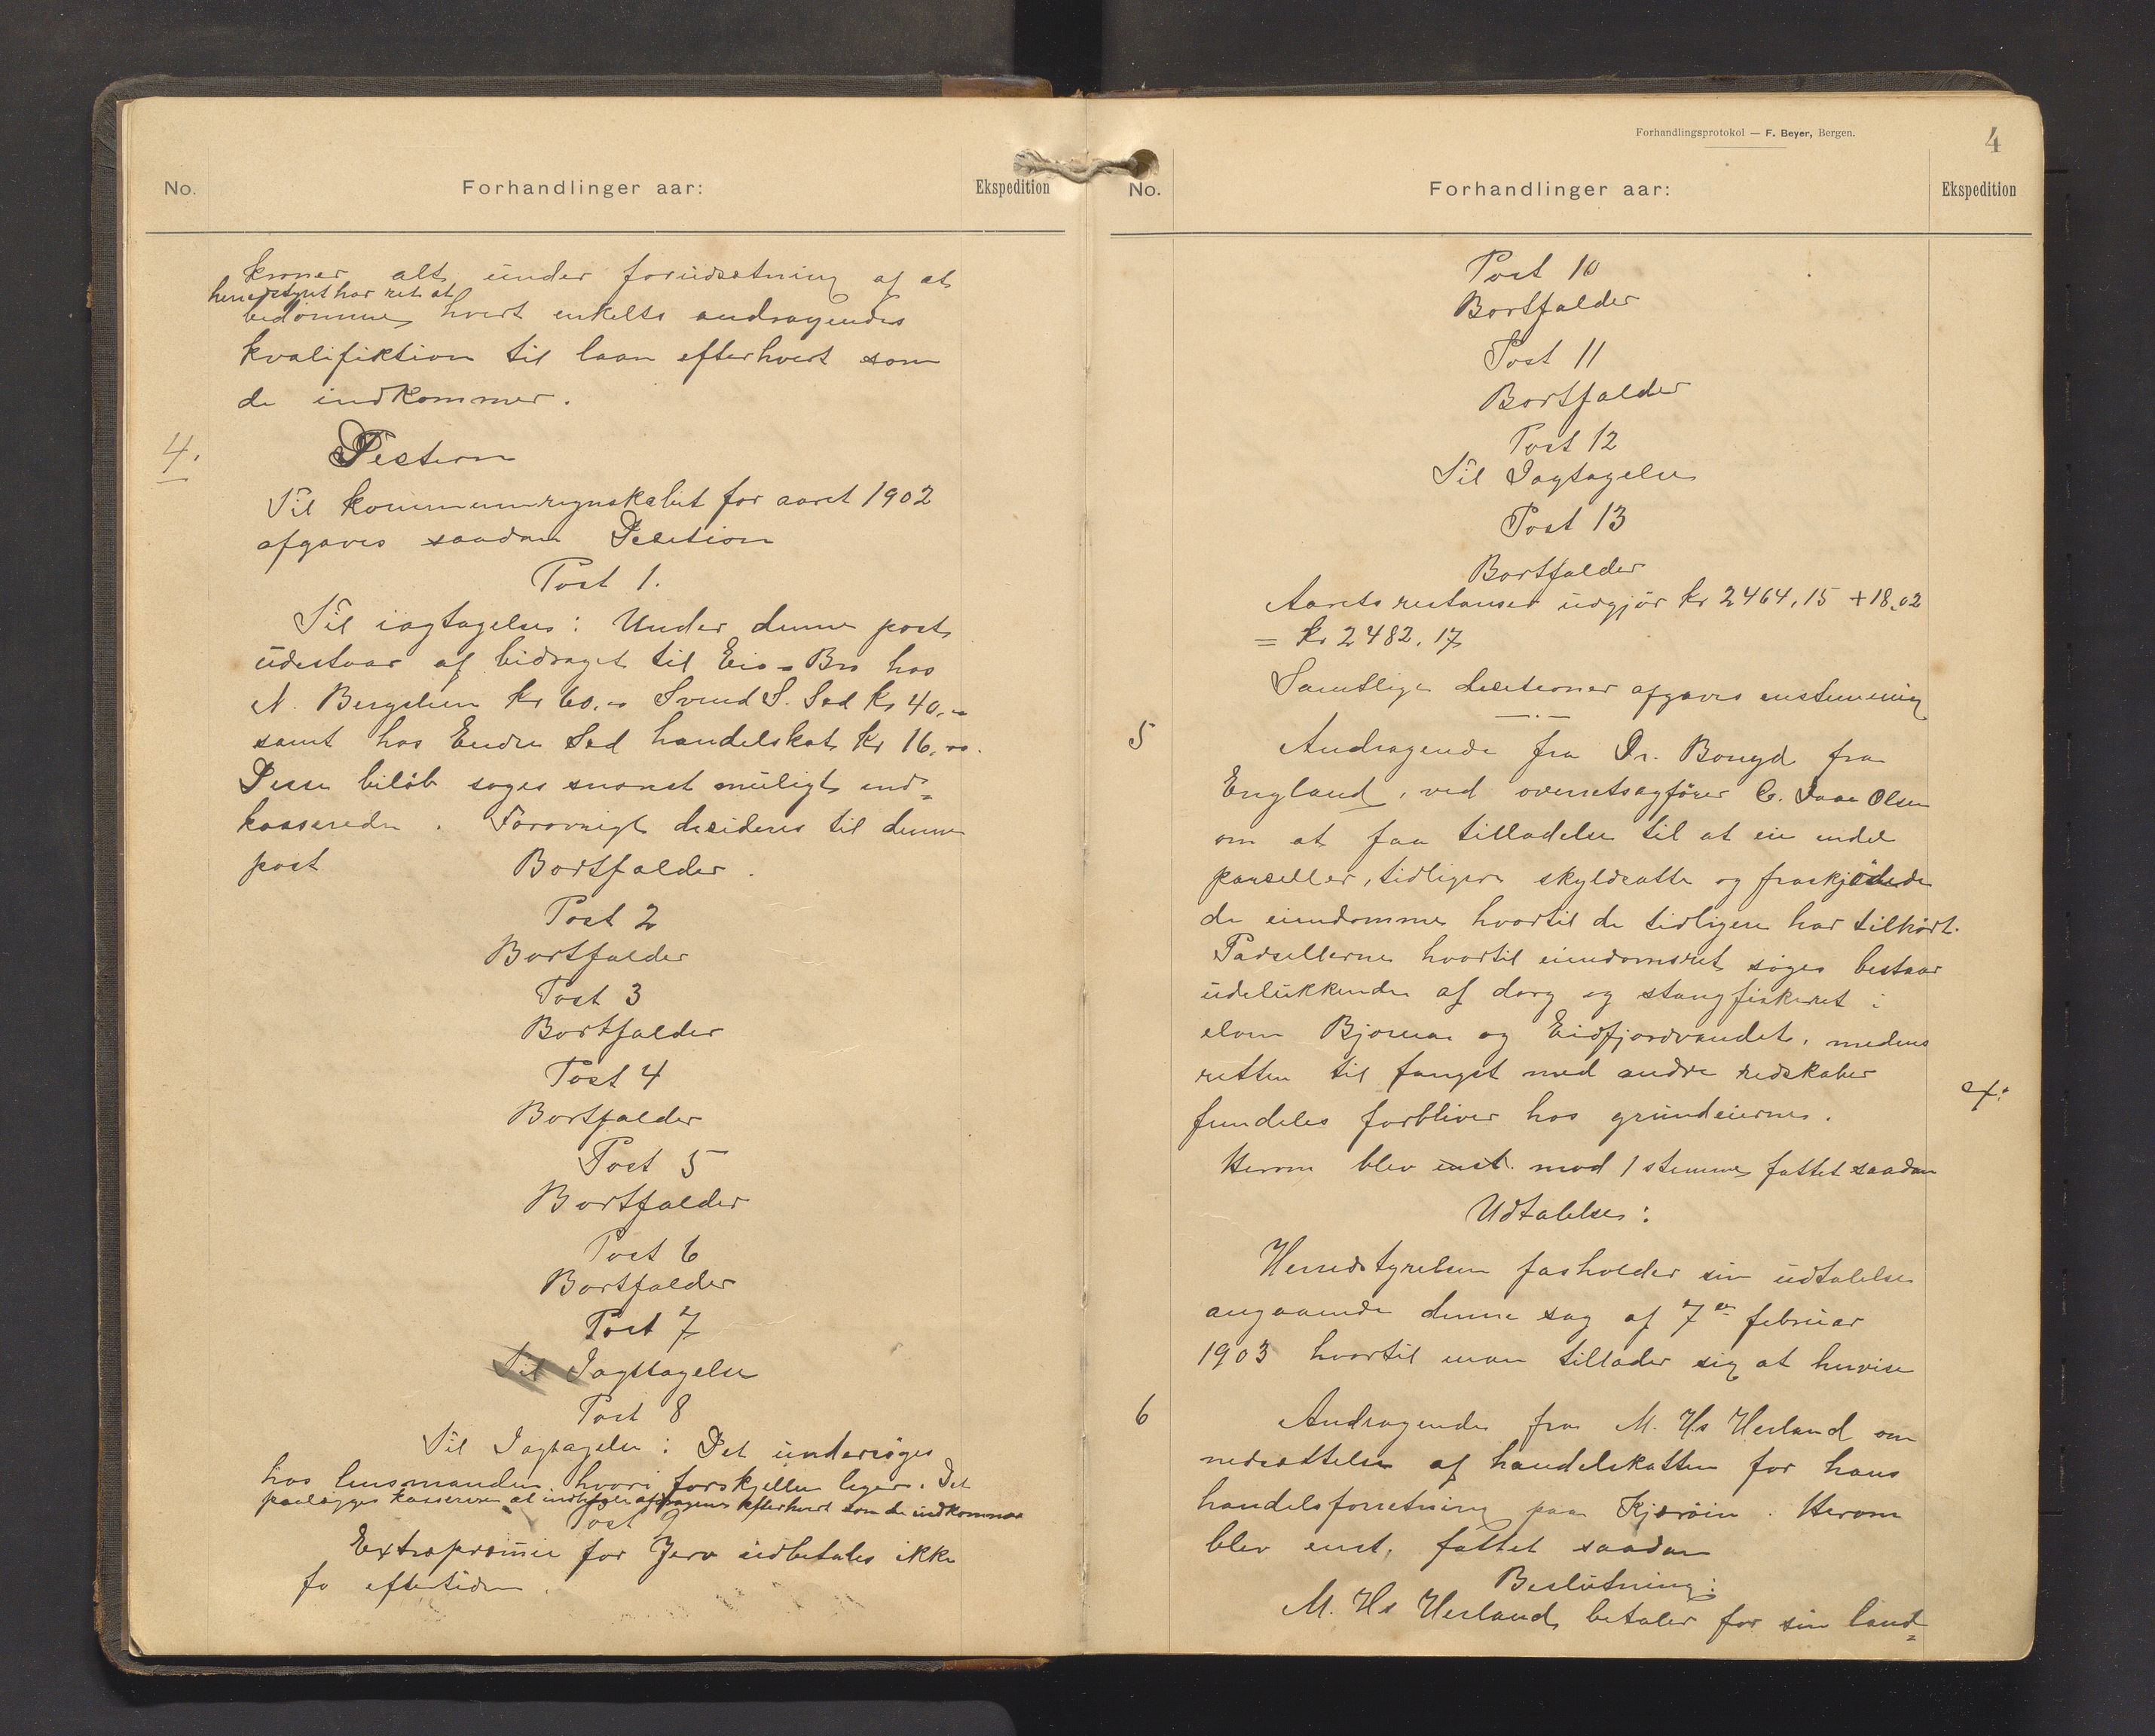 No.
Forhandlinger aar:
Ekspedition
kroner alt under forudsætning af at
herredstyret har ret at
bedømme hvert enkelts andragendes
kvalifiktion til laan efterhvert som
de indkommer.
4.
Til kommuneregnskabet for aaret 1902
afgaves saadan Decition
Post 1.
Til iagtagelse: Under denne post
udestaar af bidraget til Eis-Bro hos
N. Bergslien kr 60.- Svend S. Sæd Kr 40.-
samt hos Endre Sæd handelskat Kr 16.-
Disse biløb søges snarest muligt ind=
kasserede. Forøvrigt desideres til denne
post Bortfalder.
Post 2
Bortfalder
Post 3
Bortfalder
Post 4
Bortfalder
Post 5
Bortfalder
Post 6
Bortfalder
Post 7
Til Iagttagelse
Post 8
Til Iagtagelse: Det undersøges
hos lensmanden hvori forskjellen liger. Det
paalægges kassereren at efterhvert som de indkommer
Post 9
Extrapræmie for Jerv udbetales ikke
fo eftertiden.
Forhandlingsprotokol — F. Beyer, Bergen.
4
No.
Forhandlinger aar:
Ekspedition
Post 10
Bortfalder
Post 11
Bortfalder
Post 12
Til Iagtagelse
Post 13
Bortfalder
Aarets restanser udgjør kr 2464,15 + 18,02
= kr 2482.17
Samtlige decitioner afgaves enstemmig
5
Andragende fra Dr. Bougd fra
England, ved overretsagfører C. Olsen
om at faa tilladelse til at eie endel
parseller, tidligere skyldsatte og fraskjødede
de eiendomme hvortil de tidligere har tilhørt.
Parsellerne hvortil eiendomsret søges bestaar
udelukkende af dorg og stangfiskeret i
elven Bjoreia og Eidfjordvandet, medens
retten til fangst med andre redskaber
fremdeles forbliver hos grundeierne.
ex.
Herom blev enst. mod 1 stemme fattet saadan
Udtalelse:
Herredstyrelsen fasholder sin udtalelse
angaaende denne sag af 7de februar
1903 hvortil man tillader sig at henvise
6
Andragende fra M. Hs Herland om
nedsættelse af handelskatten for hans
handelsforretning paa Kjærøin. Herom
blev enst. fattet saadan
Beslutning:
M. Hs Herland betaler for sin land=